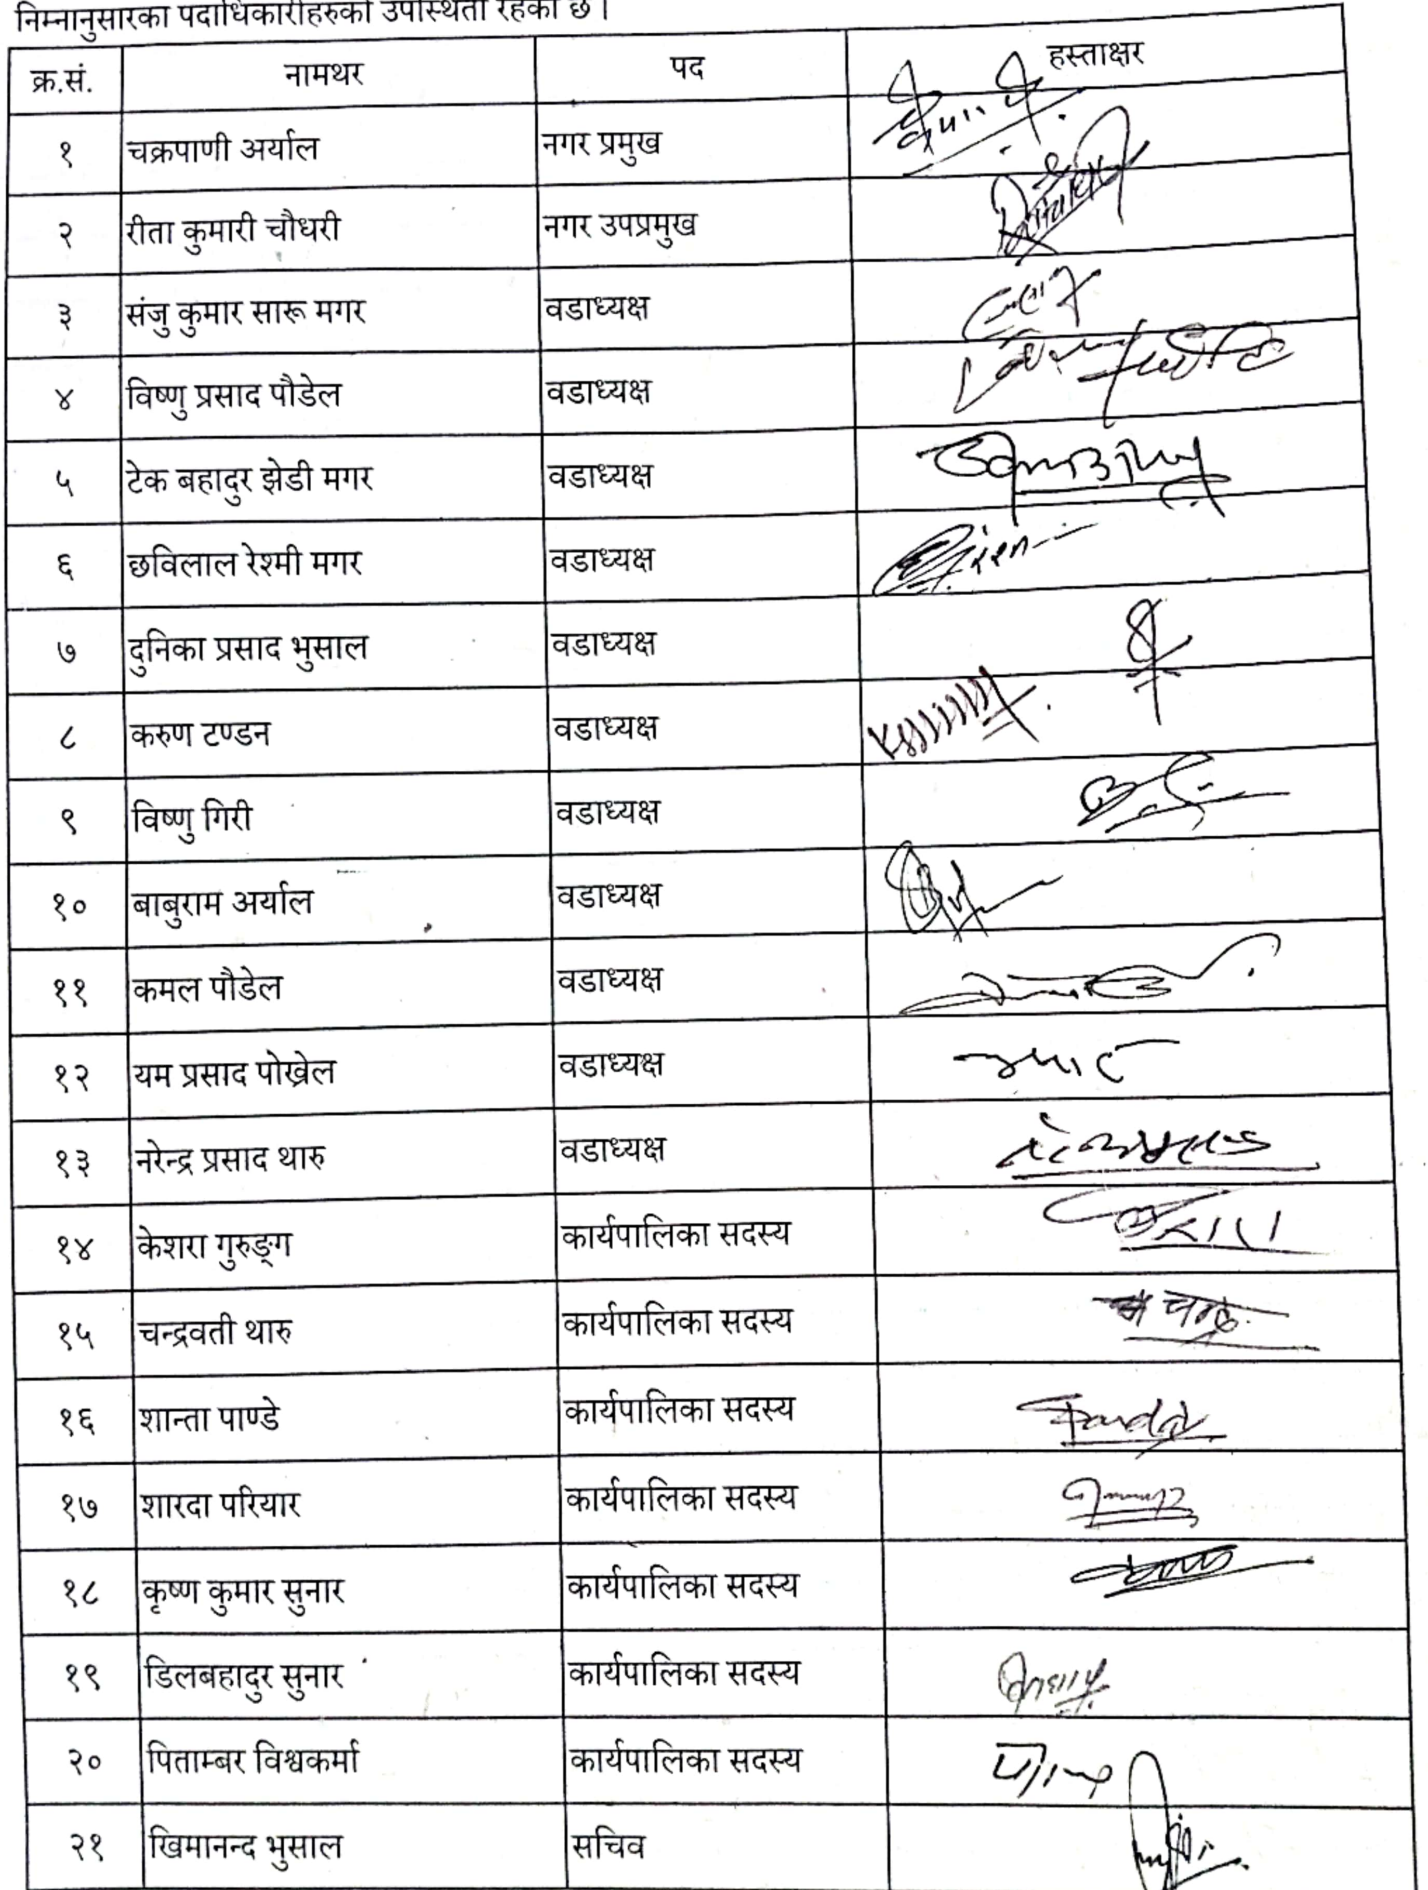 निम्नानुसारका पदाधिकारीहरुको उपस्थिती रहेको छ ।
क्र.सं. नामथर पद हस्ताक्षर
१ चक्रपाणी अर्याल नगर प्रमुख
२ रीता कुमारी चौधरी नगर उपप्रमुख
३ संजु कुमार सारू मगर वडाध्यक्ष
४ विष्णु प्रसाद पौडेल वडाध्यक्ष
५ टेक बहादुर झेडी मगर वडाध्यक्ष
६ छविलाल रेश्मी मगर वडाध्यक्ष
७ दुनिका प्रसाद भुसाल वडाध्यक्ष
८ करुण टण्डन वडाध्यक्ष
९ विष्णु गिरी वडाध्यक्ष
१० बाबुराम अर्याल वडाध्यक्ष
११ कमल पौडेल वडाध्यक्ष
१२ यम प्रसाद पोख्रेल वडाध्यक्ष
१३ नरेन्द्र प्रसाद थारु वडाध्यक्ष
१४ केशरा गुरुङ्ग कार्यपालिका सदस्य
१५ चन्द्रवती थारु कार्यपालिका सदस्य
१६ शान्ता पाण्डे कार्यपालिका सदस्य
१७ शारदा परियार कार्यपालिका सदस्य
१८ कृष्ण कुमार सुनार कार्यपालिका सदस्य
१९ डिलबहादुर सुनार कार्यपालिका सदस्य
२० पिताम्बर विश्वकर्मा कार्यपालिका सदस्य
२१ खिमानन्द भुसाल सचिव